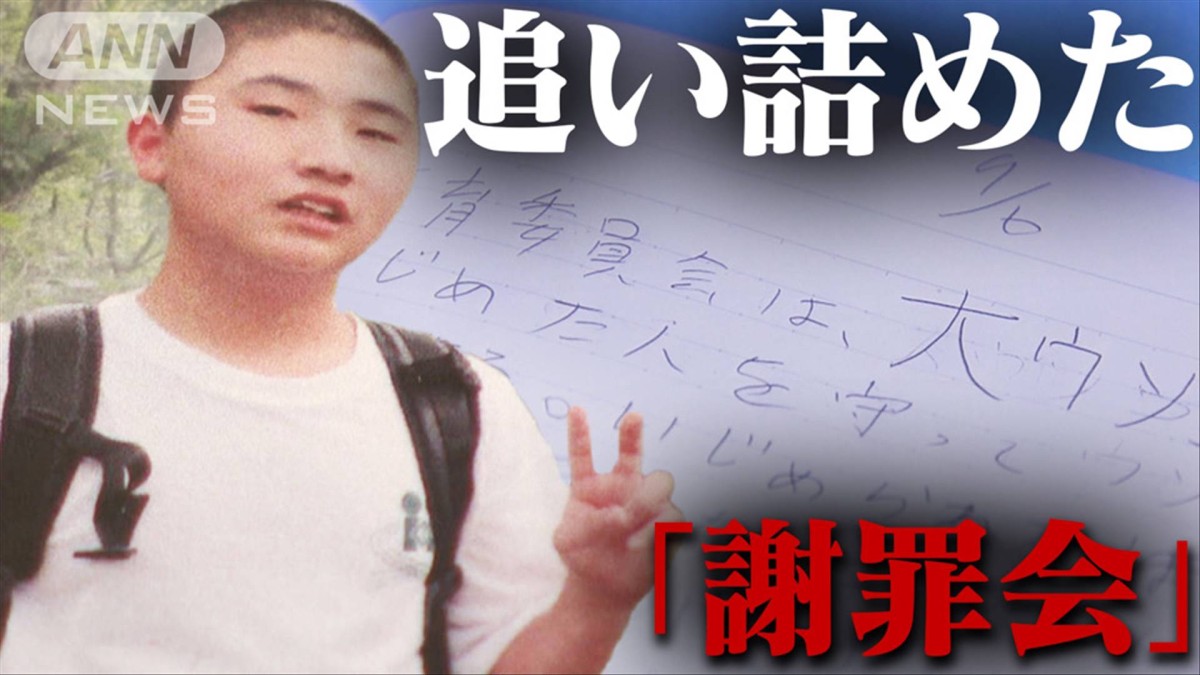 ANN
NEWS
追い詰めた
9/6
育委員会は、大ウソ
じめた人を守って ウソ
いじめ
「謝罪会」